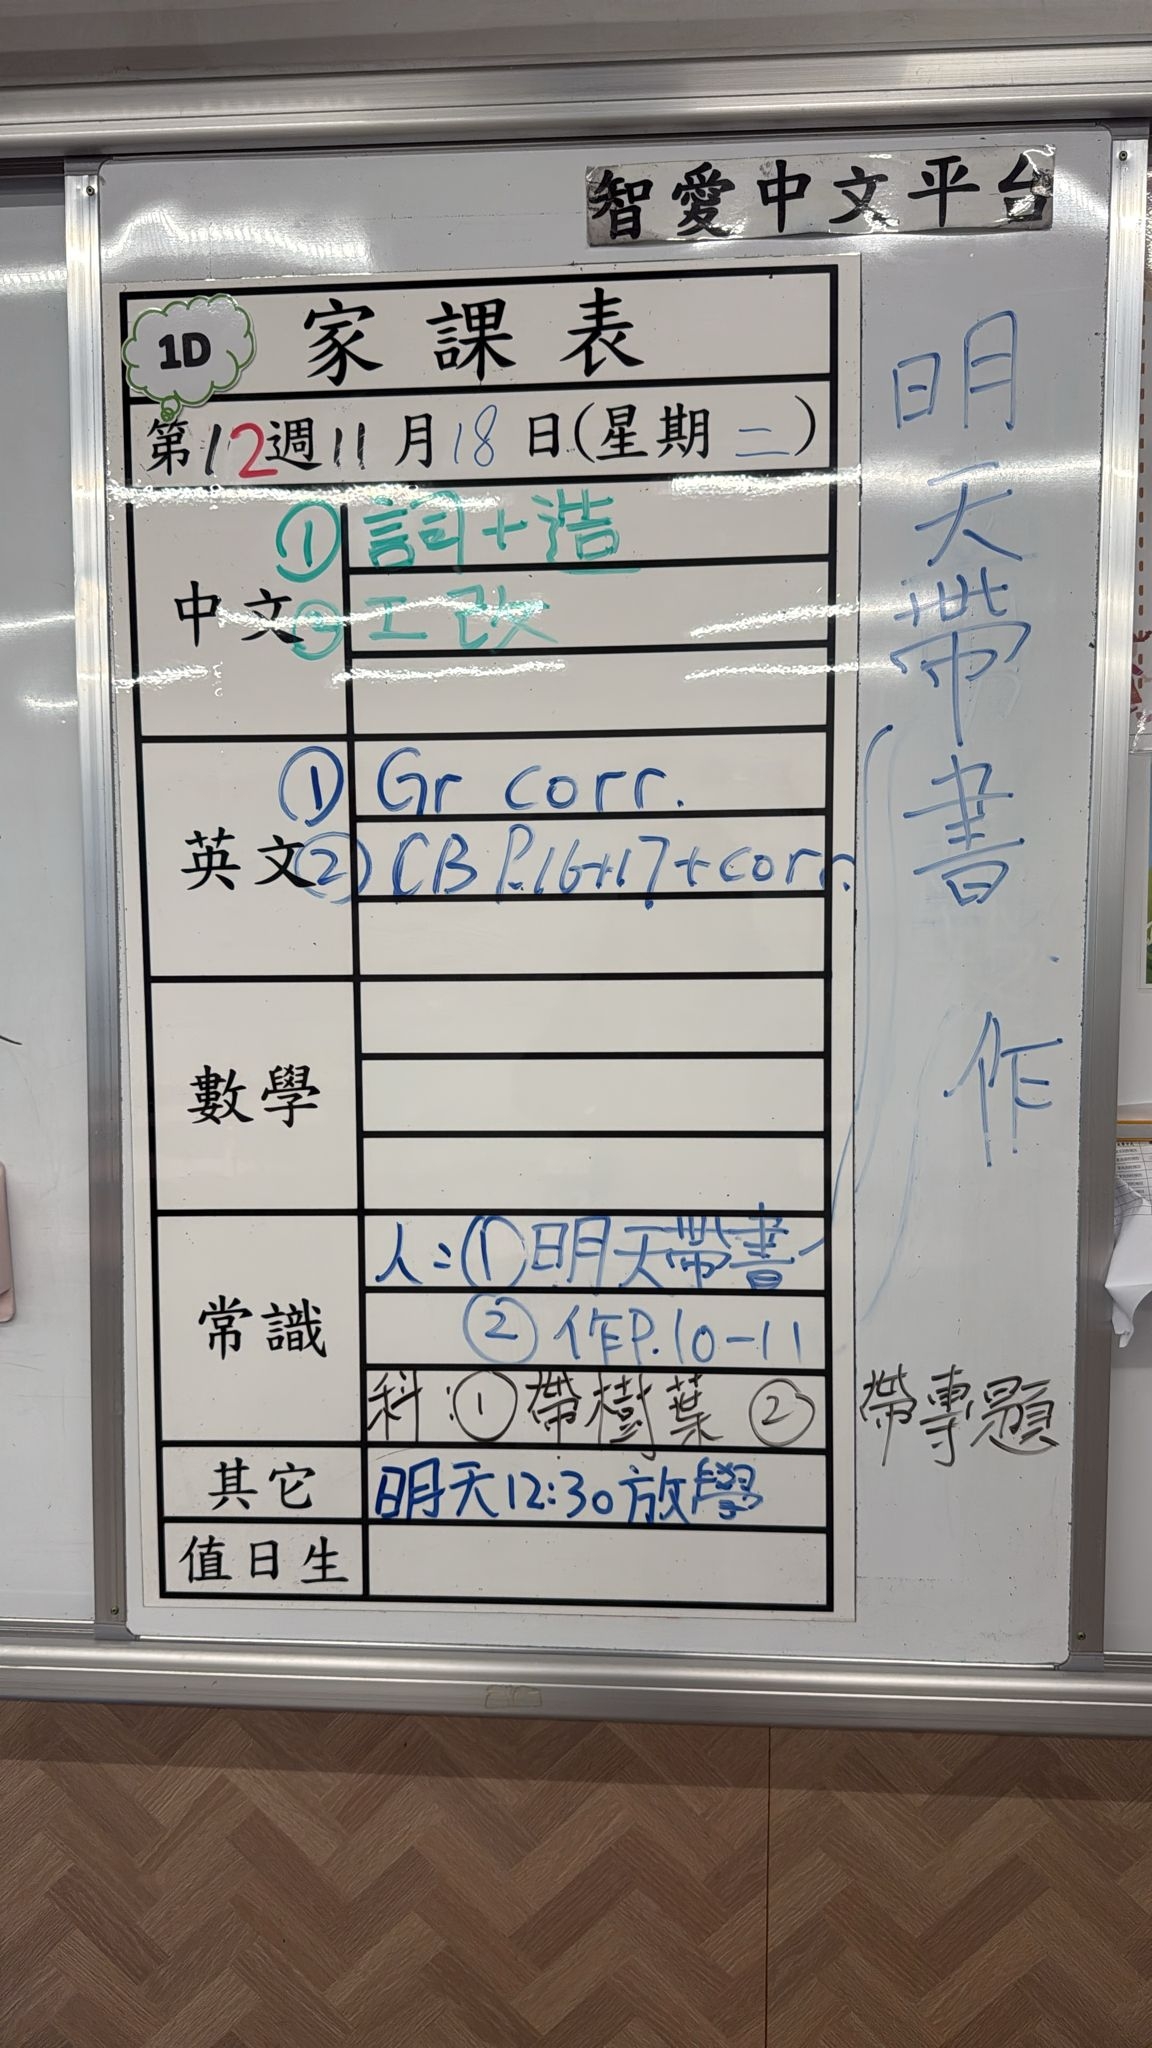 智愛中文平台
1D
家課表
第12週11月18日(星期二)
中文
① 詞+造
② 工改
英文
① Gr corr.
② CB P.16+17+corr.
數學
常識
人:①明天帶書
② 作P.10-11
科:①帶樹葉 ②帶專題
其它
明天12:30放學
值日生
明天帶書
作